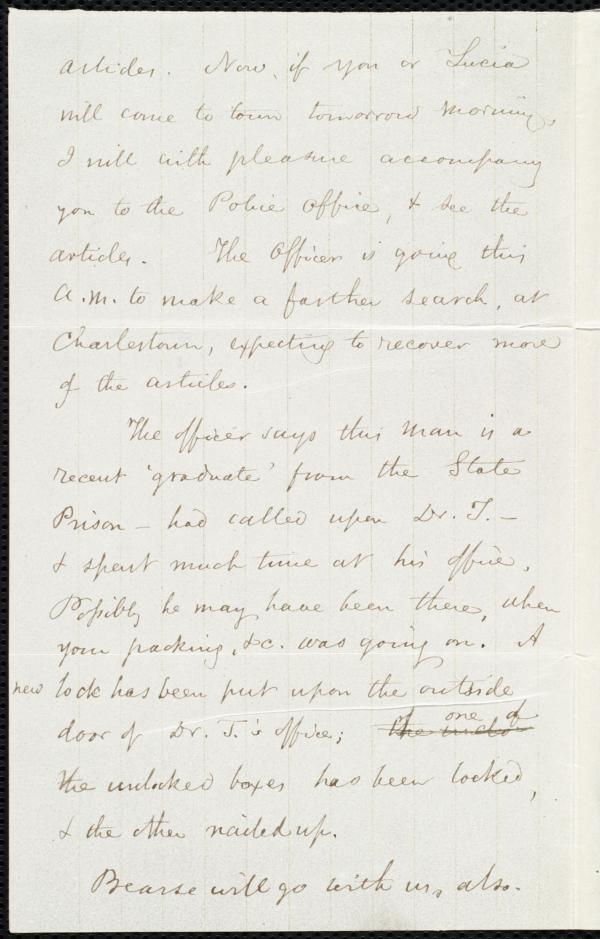 articles. Now, if you or Lucia
will come to town tomorrow morning,
I will with pleasure accompany
you to the Police Office, & see the
articles. The Officer is going this
A.M. to make a farther search, at
Charlestown, expecting to recover more
of the articles.
The officer says this man is a
recent 'graduate' from the State
Prison – had called upon Dr. T. –
& spent much time at his office.
Possibly he may have been there, when
your packing, &c. was going on. A
new lock has been put upon the outside
door of Dr. T.'s office; the unlo one of
the unlocked boxes has been locked,
& the other nailed up.
Bearse will go with us, also.